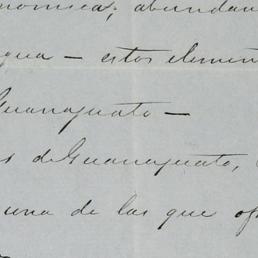 abundan
agua — estos elemen
Guanajuato —
s de Guanajuato,
una de las que of